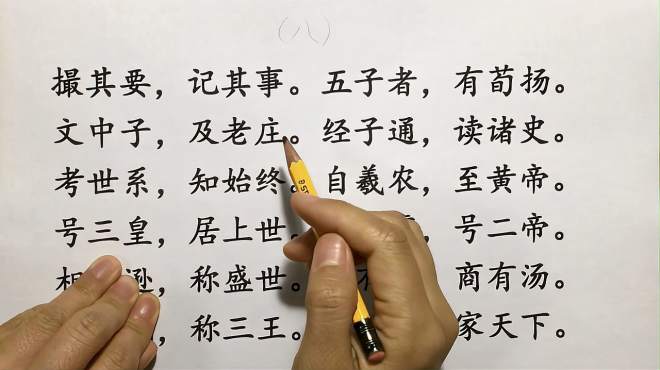 （八）
撮其要，记其事。五子者，有荀扬。
文中子，及老庄。经子通，读诸史。
考世系，知始终。自羲农，至黄帝。
号三皇，居上世。，号二帝。
相逊，称盛世。有商有汤。
，称三王。家天下。